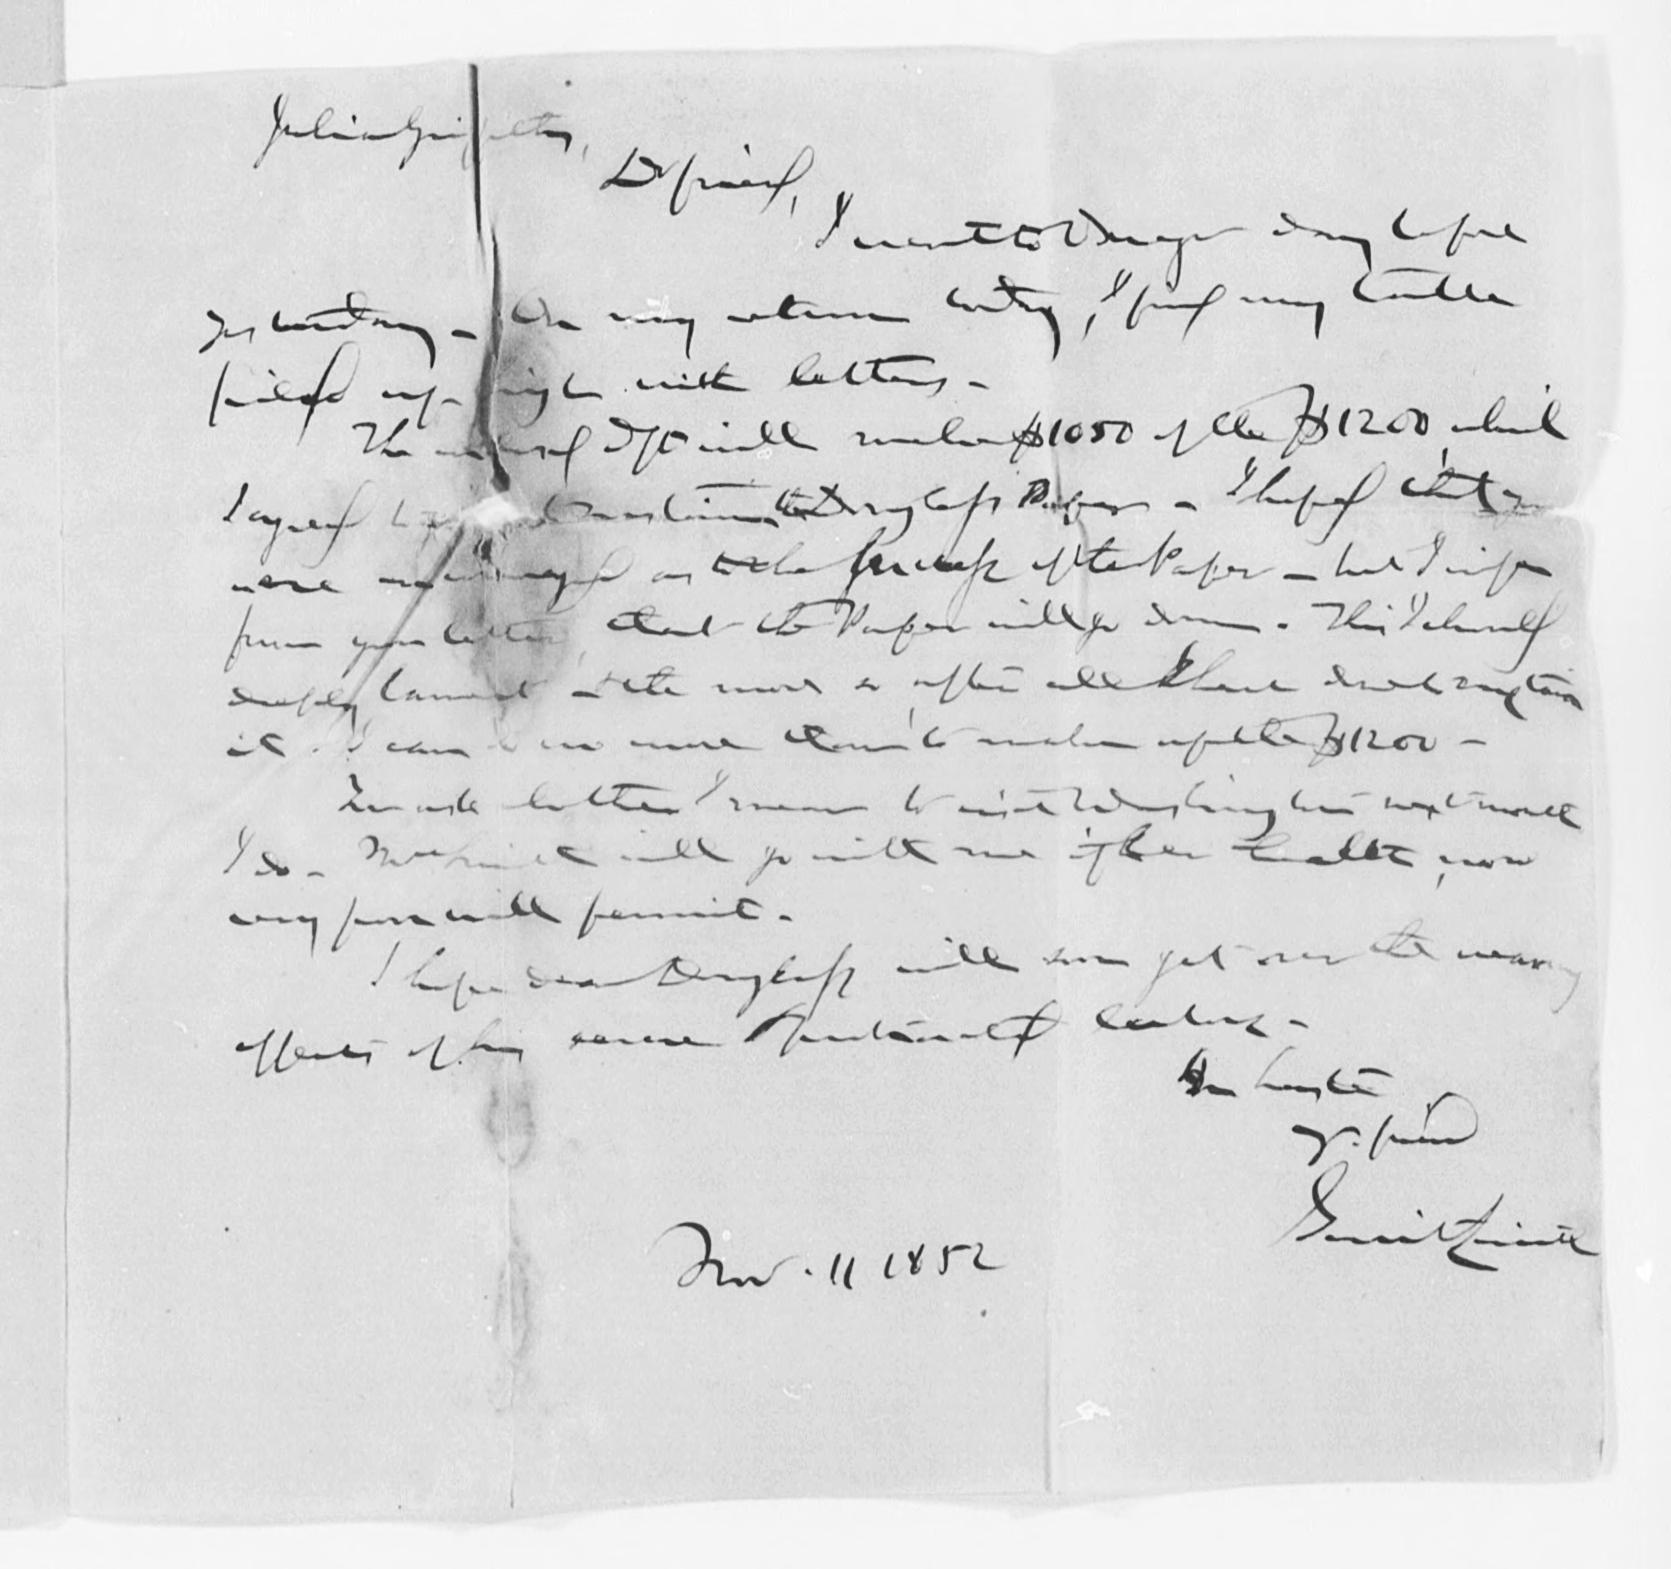 Julia Griffiths,
Dr friend,
I went to Oswego day before
yesterday - On my return today, I find my table
piled up high with letters -
The enclosed dft will make $1050 of the $1200 which
I agreed to Douglass' Paper - I hoped that you
were as to the success of the Paper - but I infer
from your letter, that the Paper will go down. This I should
deeply lament - & the more so, after all I have done to sustain
it. I can do no more than to make up the $1200 -
You ask whether I mean to visit Washington next month
I do - Mrs Smith will go with me if her health, now
very poor will permit.
I hope dear Douglass will soon get over the
effects of his severe & labors -
In haste
yr. friend
Gerrit Smith
Nov. 11 1852